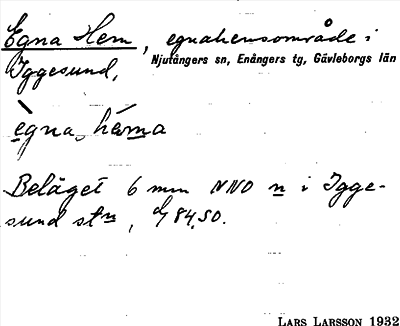 Egna Hem, egnahemsområde i
Iggesund, Njutångers sn, Enångers tg, Gävleborgs län
ègna héma
Beläget 6 mm NNO n i Igge-
sund stn, 84,50.
LARS LARSSON 1932